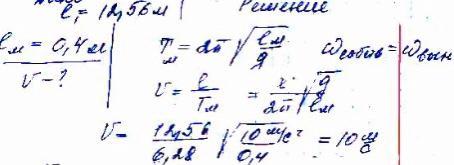 ℓ₁ = 12,56 м Решение
ℓм = 0,4 м
Tм = 2π √(ℓм/g) ωсобств = ωвын
V - ?
V = ℓ/Tм = x/2π √(g/ℓм)
V = 12,56/6,28 √(10 м/с²/0,4) = 10 м/с